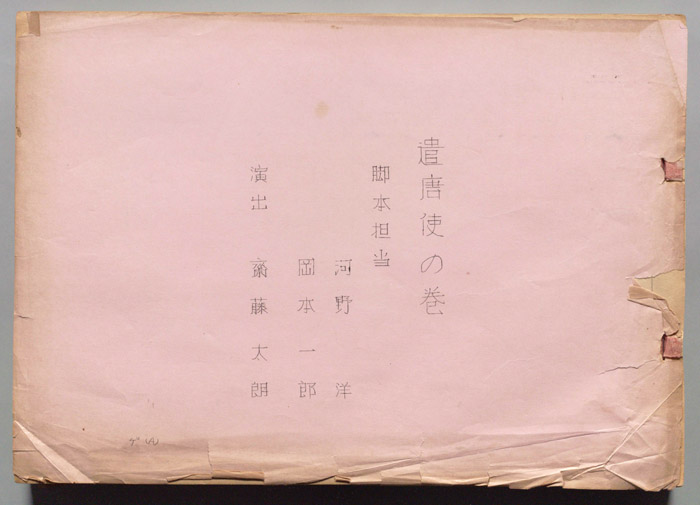 遣唐使の巻
脚本担当
河野 洋
岡本一郎
演出 齋藤太朗